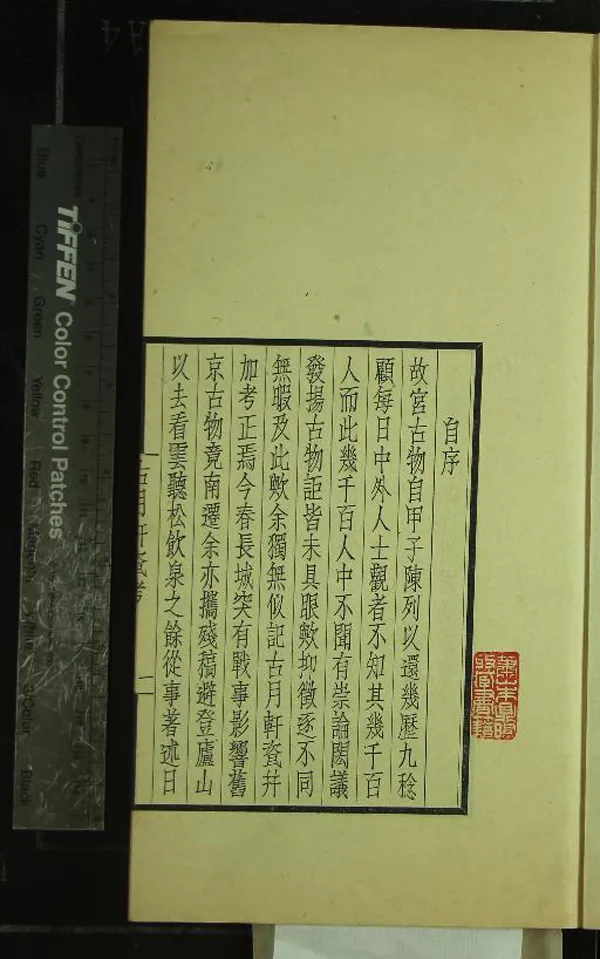 自序
故宮古物自甲子陳列以還幾歷九稔
顧每日中外人士觀者不知其幾千百
人而此幾千百人中不聞有崇論閎議
發揚古物詎皆未具眼歟抑徵逐不同
無暇及此歟余獨無似記古月軒瓷幷
加考正焉今春長城突有戰事影響舊
京古物竟南遷余亦攜殘稿避登廬山
以去看雲聽松飲泉之餘從事著述日
古月軒瓷考
一
TIFFEN Color Control Patches
Blue
Cyan
Green
Yellow
Red
Magenta
White
3/Color
Black